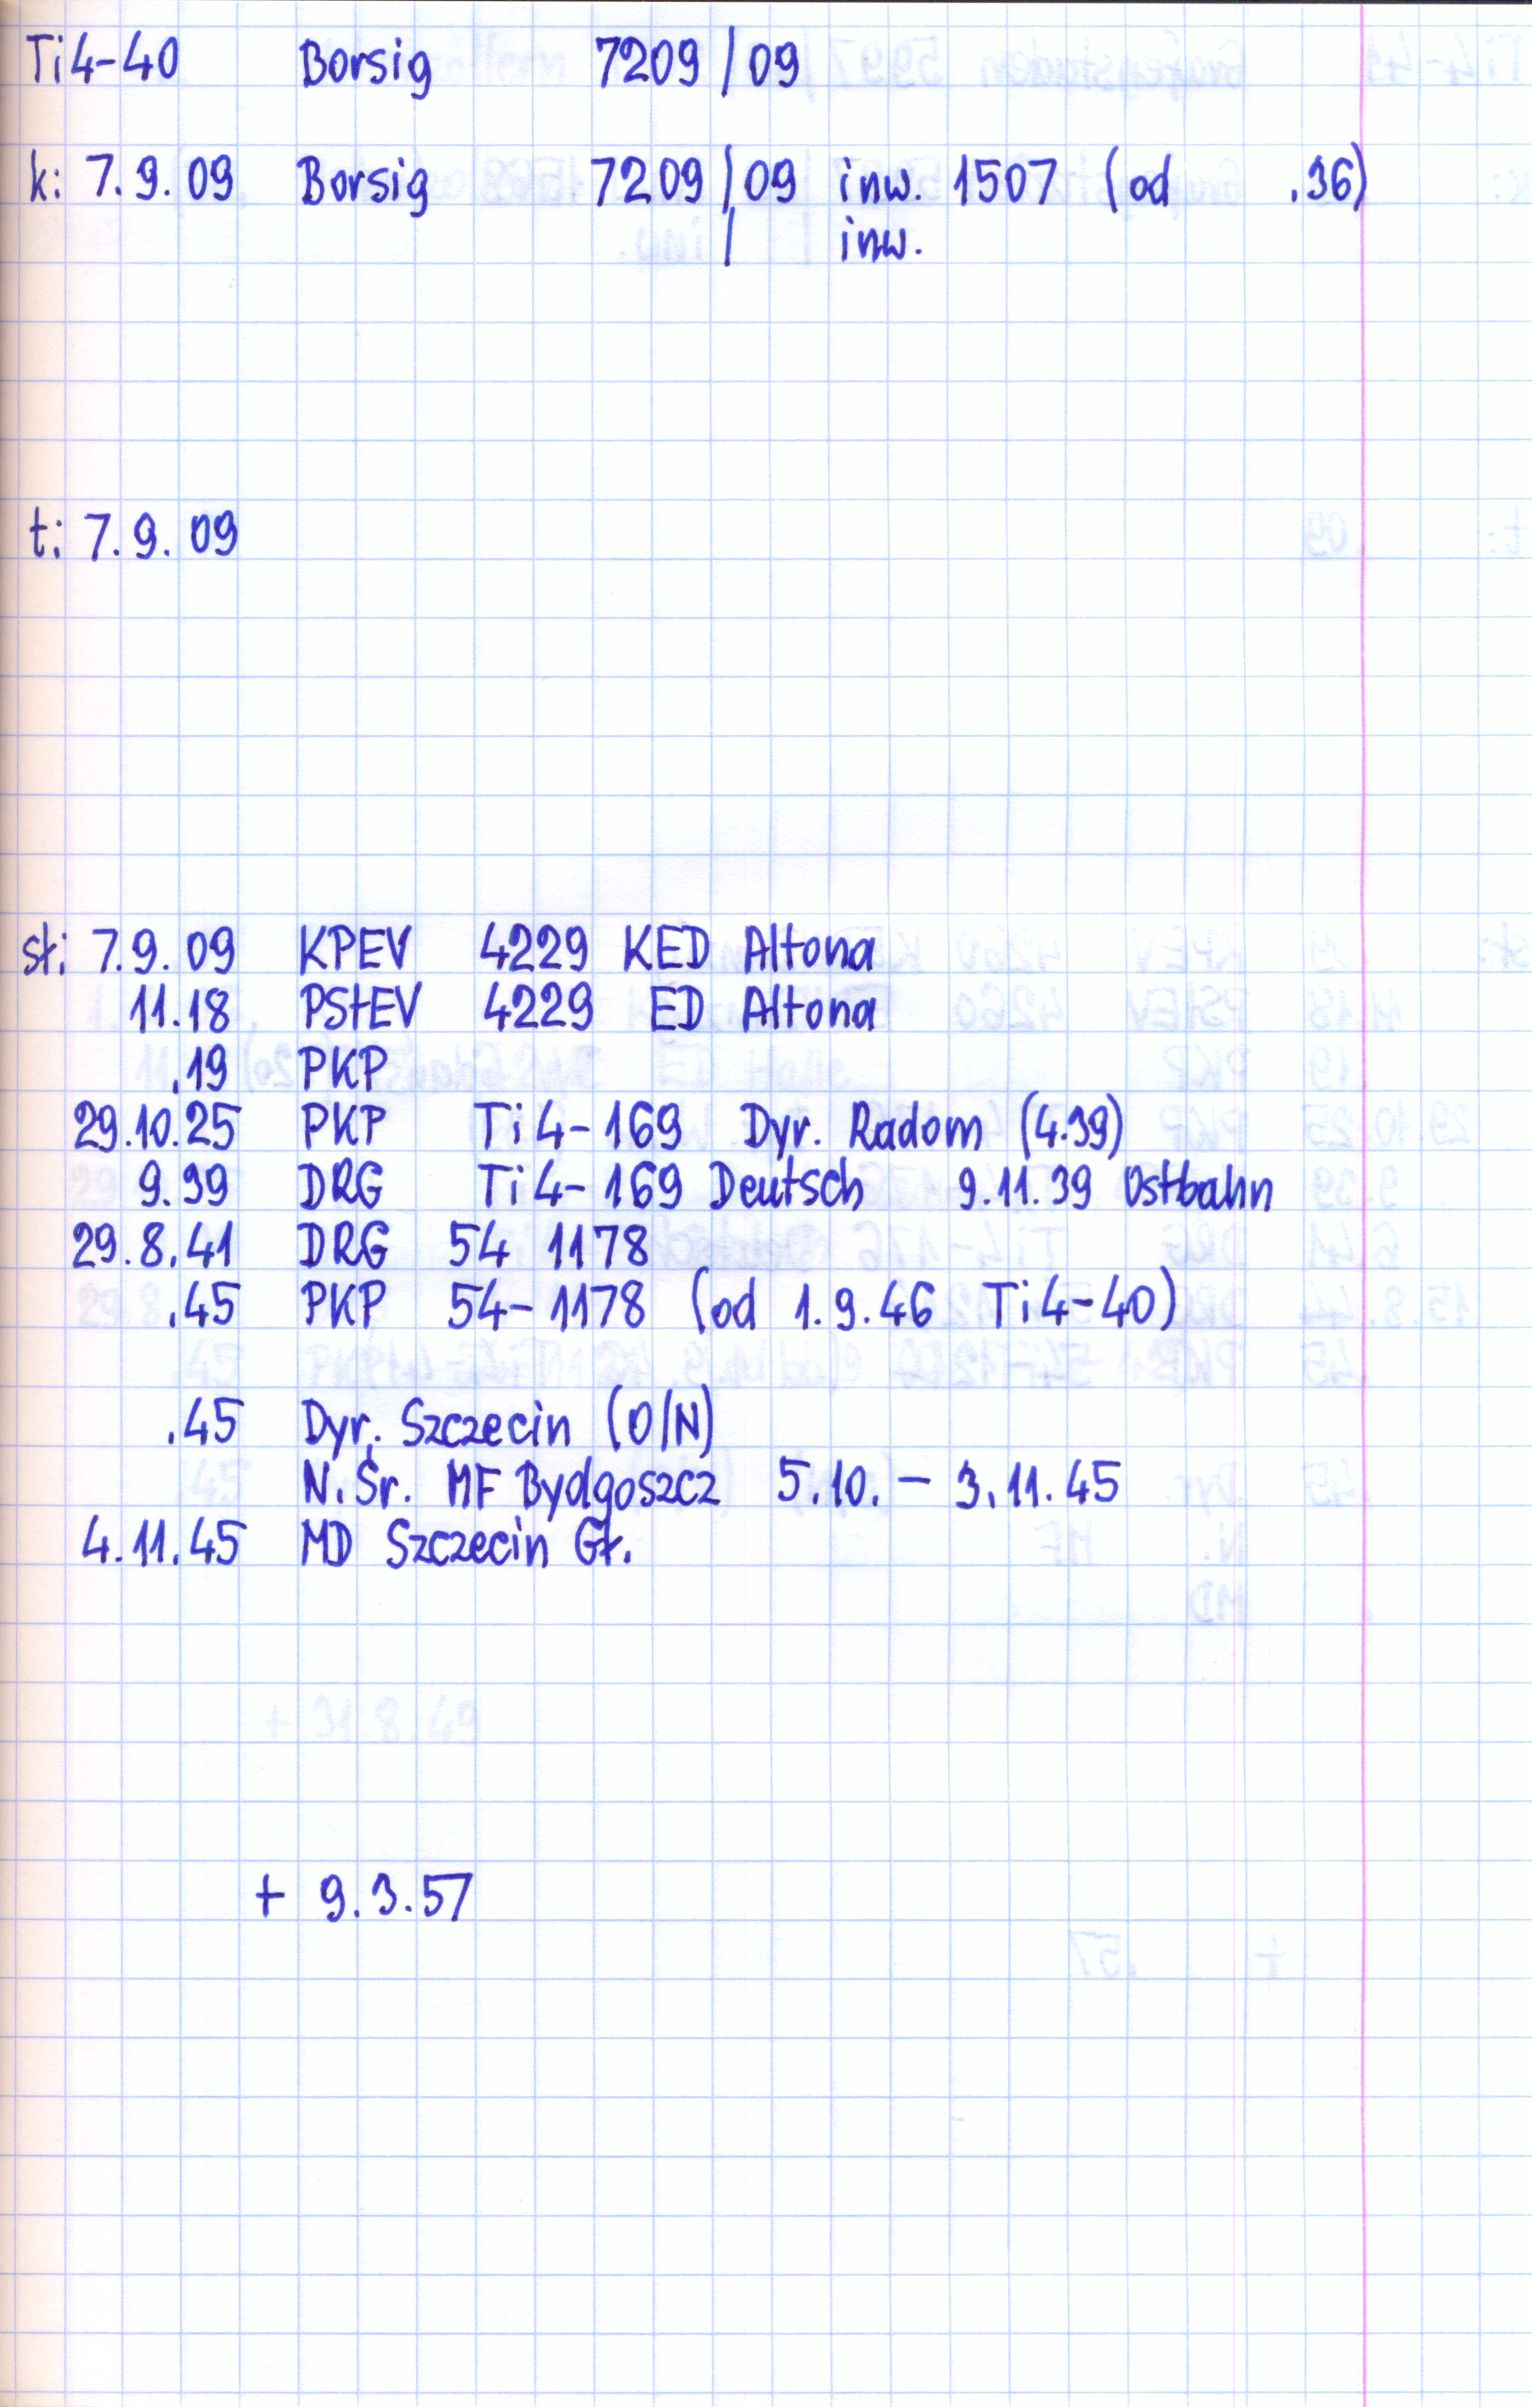 Ti4-40 Borsig 7209/09
k: 7.9.09 Borsig 7209/09 inw. 1507 (od .36)
/ inw.
t: 7.9.09
sł: 7.9.09 KPEV 4229 KED Altona
11.18 PStEV 4229 ED Altona
.19 PKP
29.10.25 PKP Ti4-169 Dyr. Radom (4.39)
9.39 DRG Ti4-169 Deutsch 9.11.39 Ostbahn
29.8.41 DRG 54 1178
.45 PKP 54-1178 (od 1.9.46 Ti4-40)
.45 Dyr. Szczecin (O/N)
N.Śr. MF Bydgoszcz 5.10. - 3.11.45
4.11.45 MD Szczecin Gł.
+ 9.3.57